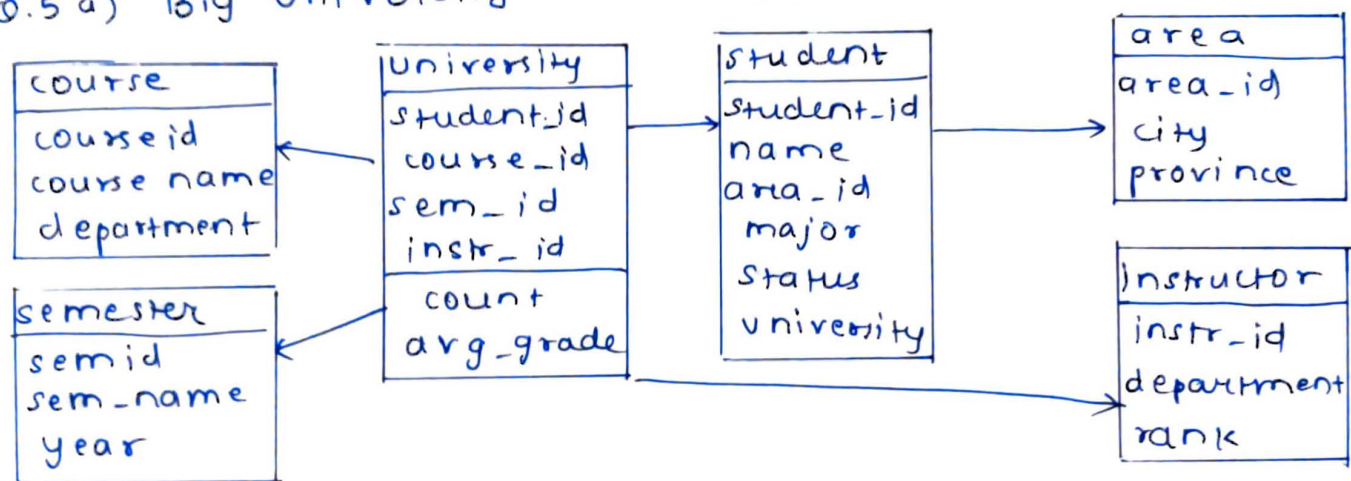 Q.5 a) Big University
course
courseid
course name
department
semester
semid
sem_name
year
university
student_id
course_id
sem_id
instr_id
count
avg_grade
student
student_id
name
area_id
major
status
university
area
area_id
city
province
instructor
instr_id
department
rank